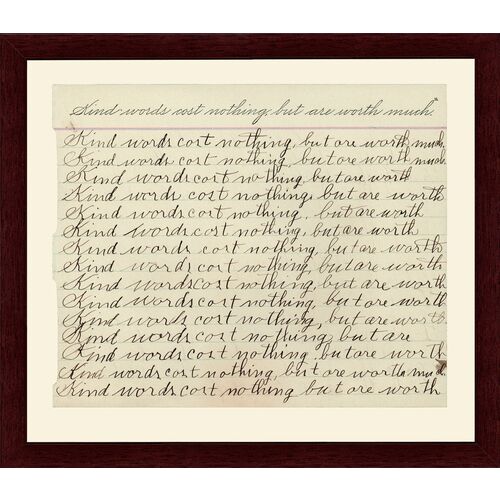 Kind words cost nothing, but are worth much.
Kind words cost nothing, but are worth much.
Kind words cost nothing, but are worth much.
Kind words cost nothing, but are worth
Kind words cost nothing, but are worth
Kind words cost nothing, but are worth
Kind words cost nothing, but are worth
Kind words cost nothing, but are worth
Kind words cost nothing, but are worth
Kind words cost nothing, but are worth
Kind words cost nothing, but are worth
Kind words cost nothing, but are worth
Kind words cost nothing but are
Kind words cost nothing, but are worth
Kind words cost nothing, but are worth much.
Kind words cost nothing but are worth